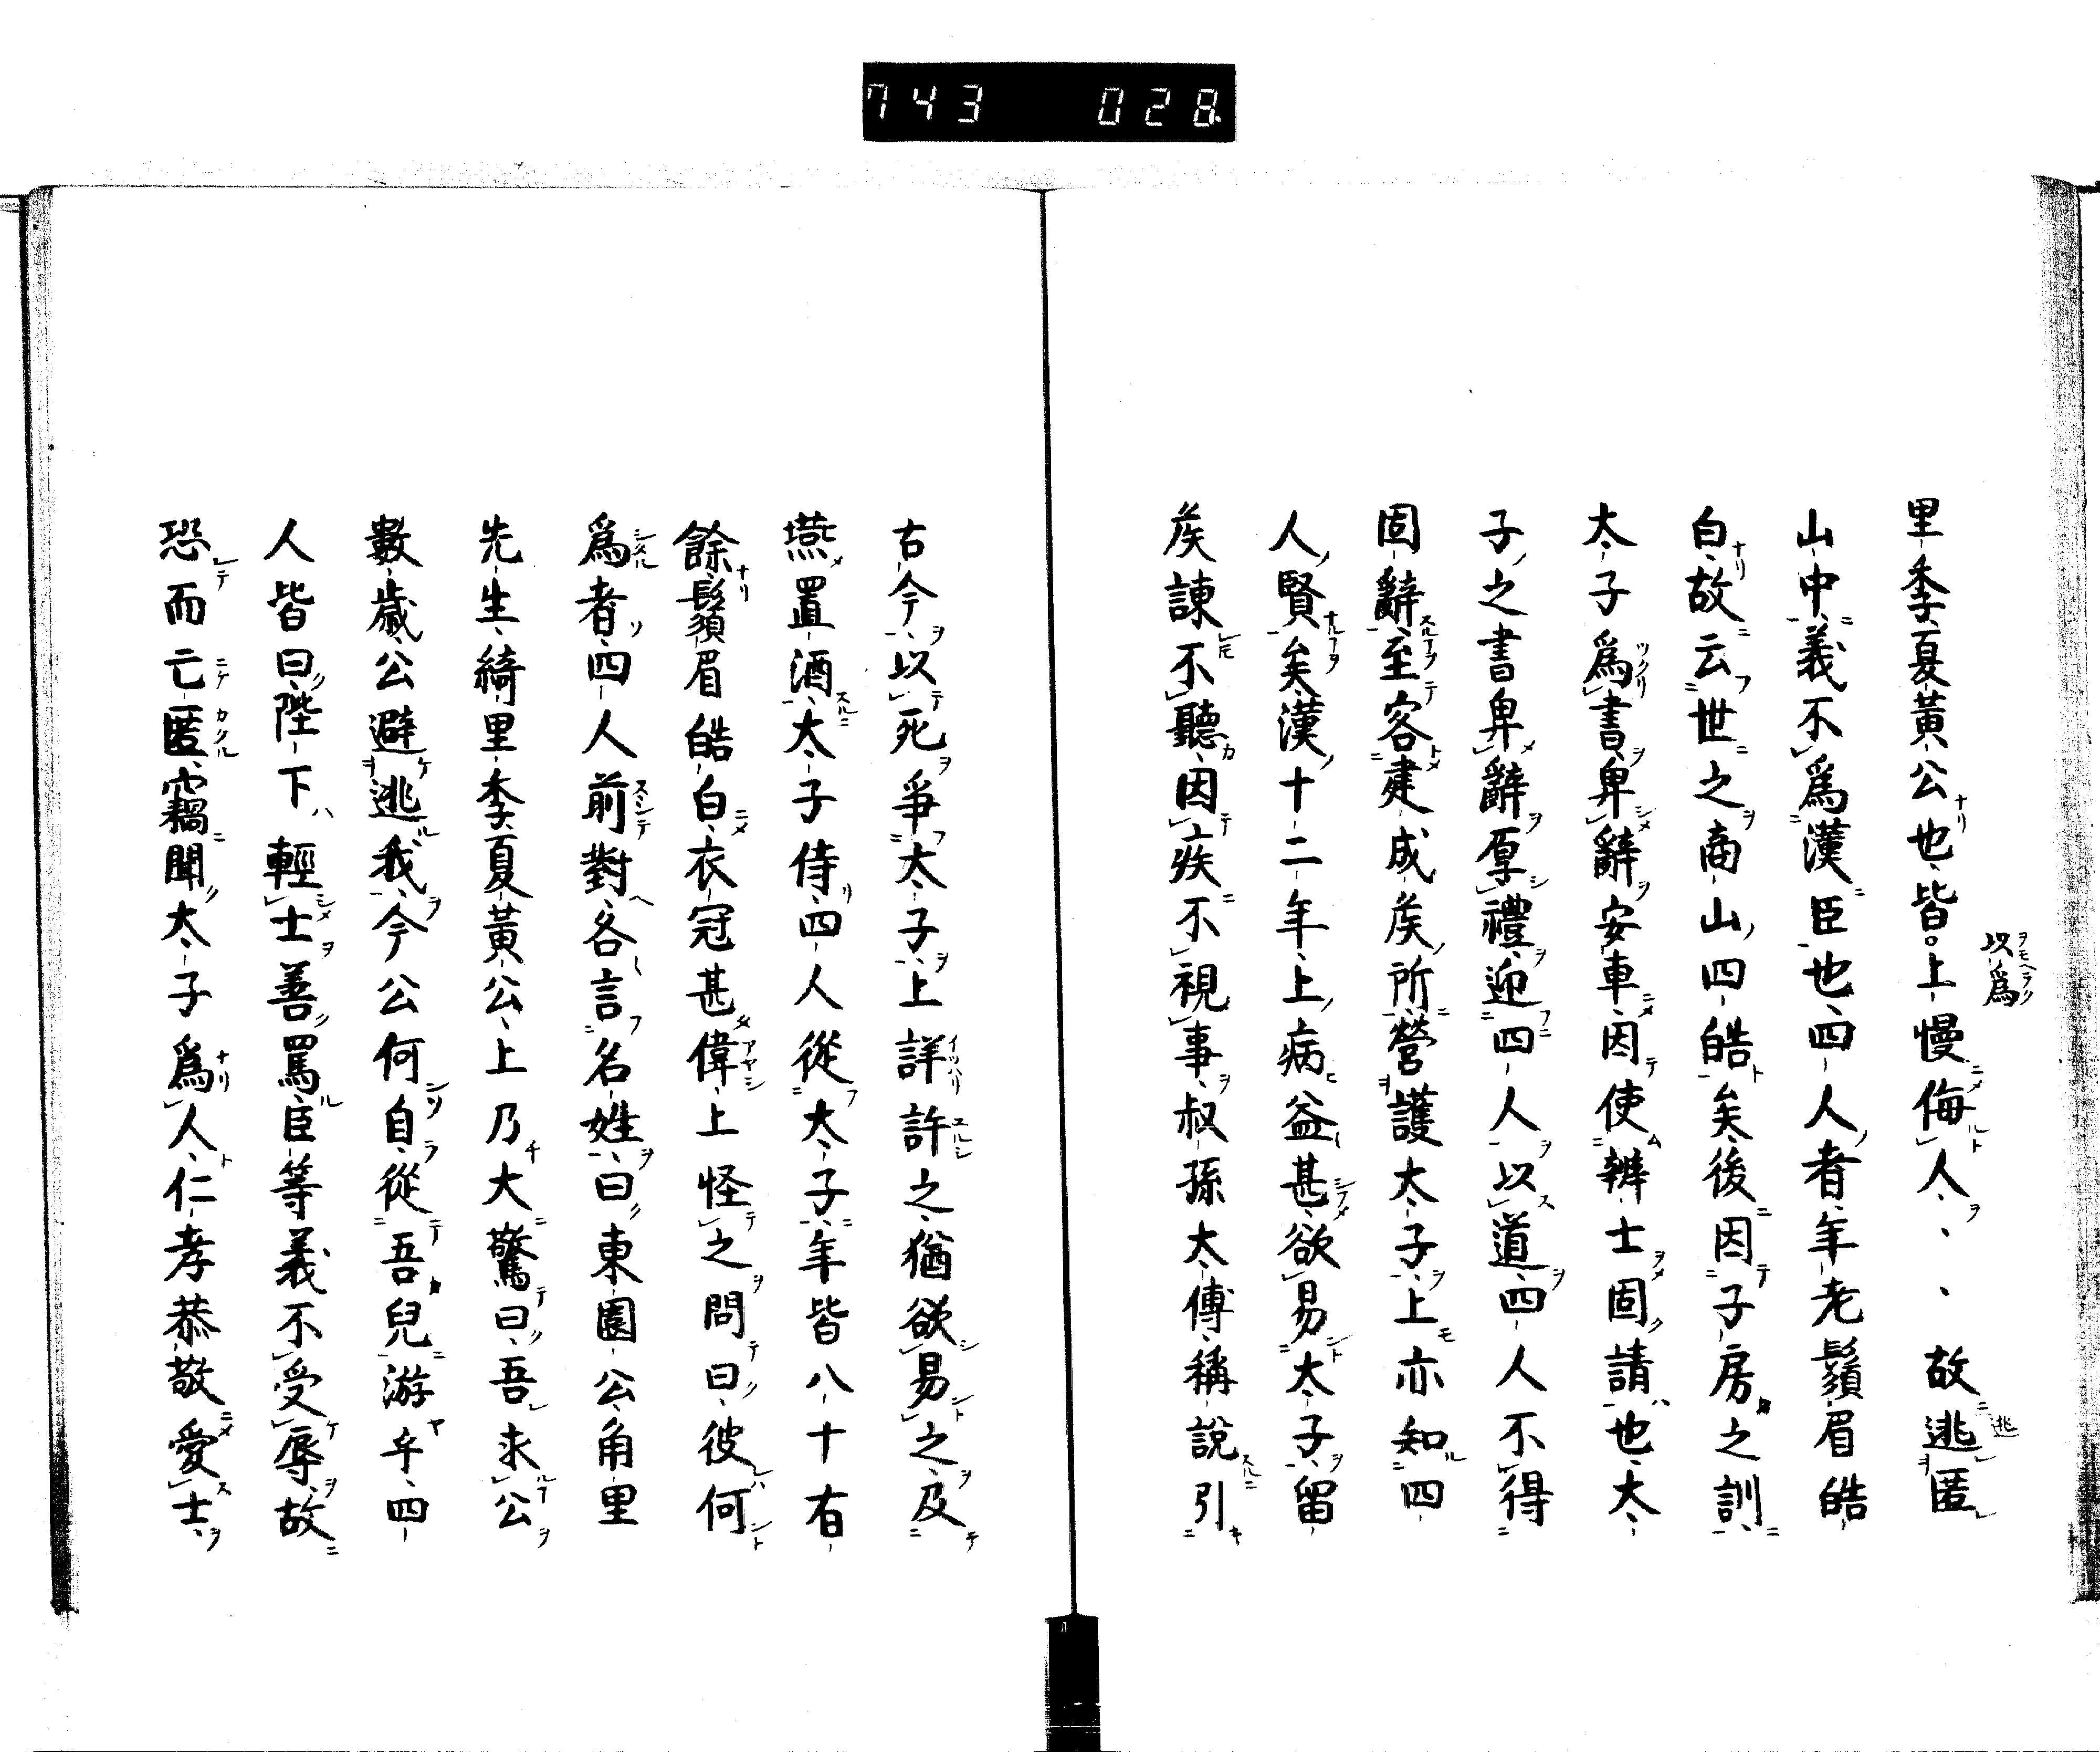 743 028
里季夏黃公也皆上慢侮人、、故逃匿
以爲
逃
山中義不爲漢臣也四人者年老鬚眉皓
白故云世之商山四皓矣後因子房之訓
太子爲書卑辭安車因使辨士固請也太
子之書卑辭厚禮迎四人以道四人不得
固辭至客建成矦所營護太子上亦知四
人賢矣漢十二年上病益甚欲易太子留
矦諫不聽因疾不視事叔孫太傅稱說引
古今以死爭太子上詳許之猶欲易之及
燕置酒太子侍四人從太子年皆八十有
餘鬚眉皓白衣冠甚偉上怪之問曰彼何
爲者四人前對各言名姓曰東園公角里
先生綺里季夏黃公上乃大驚曰吾求公
數歲公避逃我今公何自從吾兒游乎四
人皆曰陛下輕士善罵臣等義不受辱故
恐而亡匿竊聞太子爲人仁孝恭敬愛士